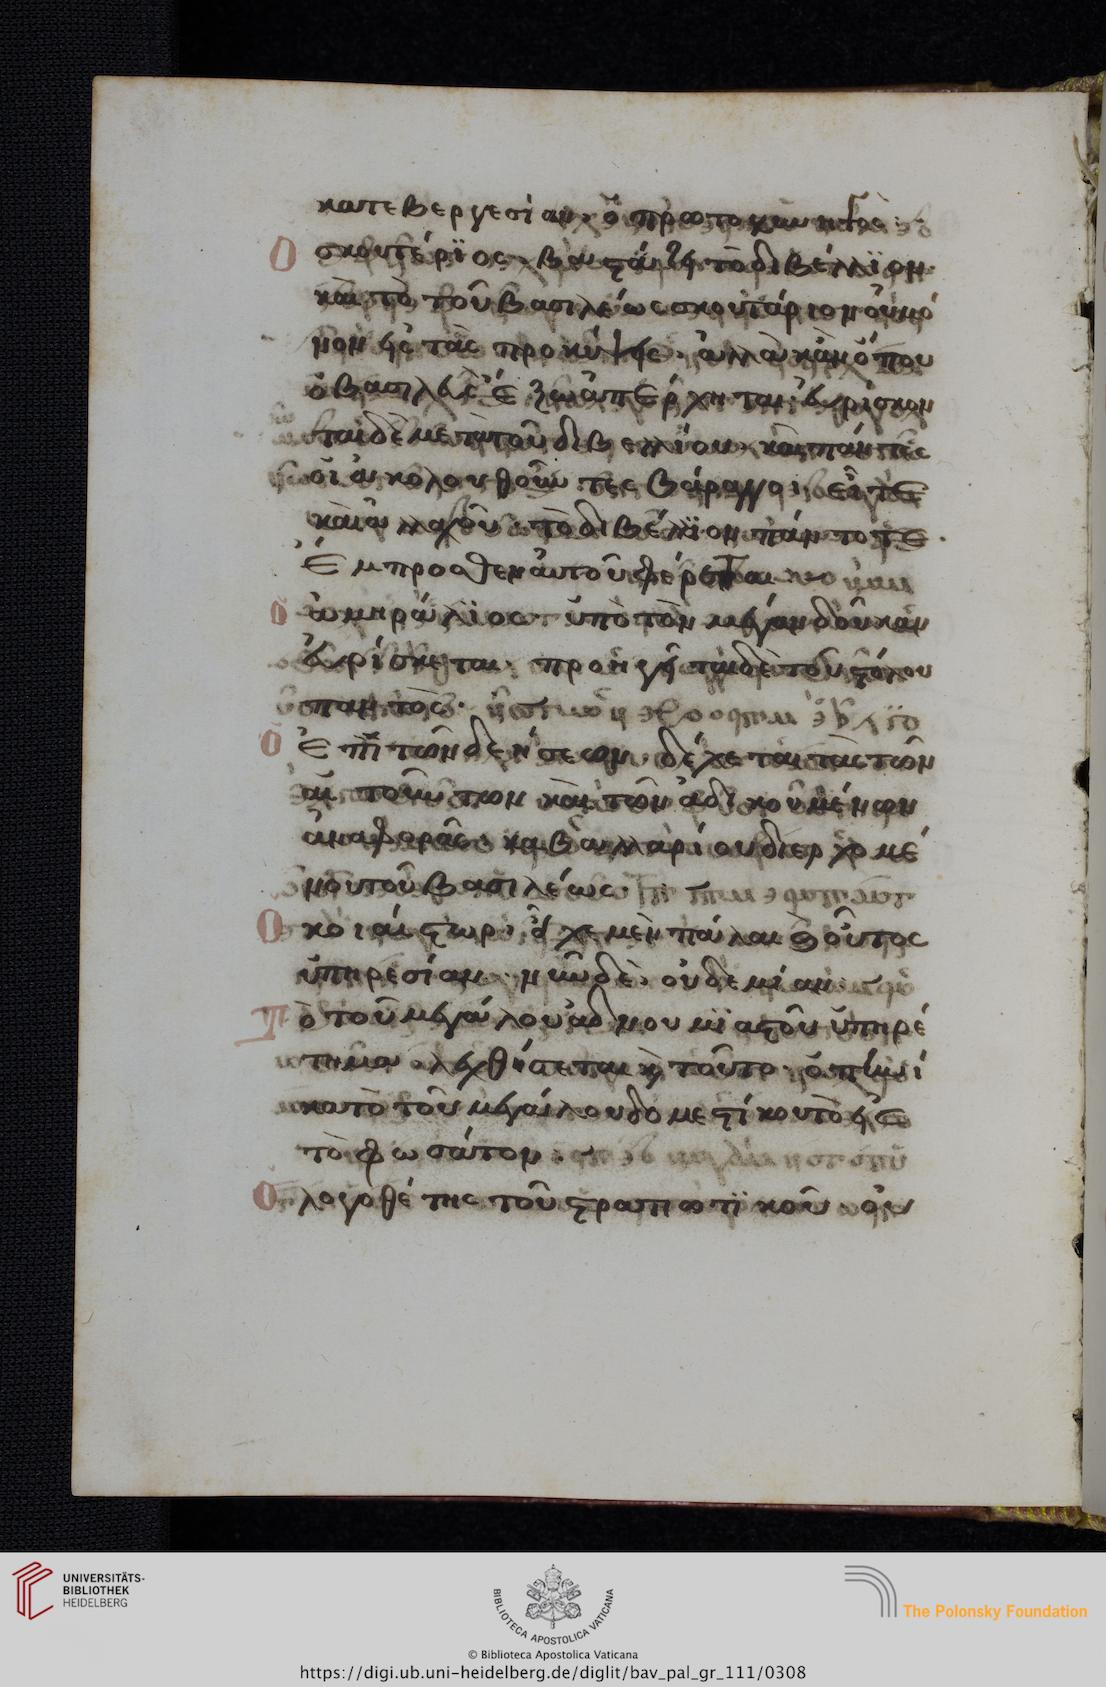 κατεβεργεσίαν, ὁ πρωτοκυνηγός·
Ὁ σκουτέριος, βαστάζει τὸ διβέλλϊον
καὶ τὸ τοῦ βασιλέως σκουτάριον οὐ μό
νον εἰς τὰς προκύψεις, ἀλλὰ κἀν ὅπου
ὁ βασιλεὺς ἔξω ἀπέρχηται· εὑρίσκον
ται δὲ μετὰ τοῦ διβελλΐου, καὶ πάντες
οἱ ἀκολουθοῦντες βάραγγοι· εἴτε
καβαλλ τὸ διβέλϊον πάντοτε
ἔμπροσθεν αὐτοῦ φέρεται
Ὁ ἀμηράλϊος ὑπὸ τὸν μέγαν δοῦκαν
εὑρίσκεται· προηγεῖται δὲ τοῦ στόλου
παντὸς·
Ὁ ἐπὶ τῶν δεήσεων, δέχεται τὰς τῶν
αἰτούντων καὶ τῶν ἀδικουμένων
ἀναφορὰς, καβαλλαρίου διερχομέ
νου τοῦ βασιλέως·
Ὁ κοιαίστωρ, εἶχε μὲν πάλαι καὶ οὗτος
ὑπηρεσίαν, νῦν δὲ, οὐδεμίαν
Τὸ τοῦ μεγάλου ἀδνουμϊαστοῦ ὑπηρέ
τημα λεχθήσεται καὶ τοῦτο, ὁπηνί
κα τὸ τοῦ μεγάλου δομεστίκου τὸ εἰς
τὸ φωσάτον
Ὁ λογοθέτης τοῦ στρατιωτϊκοῦ
UNIVERSITÄTS-
BIBLIOTHEK
HEIDELBERG
BIBLIOTECA APOSTOLICA VATICANA
The Polonsky Foundation
© Biblioteca Apostolica Vaticana
https://digi.ub.uni-heidelberg.de/diglit/bav_pal_gr_111/0308